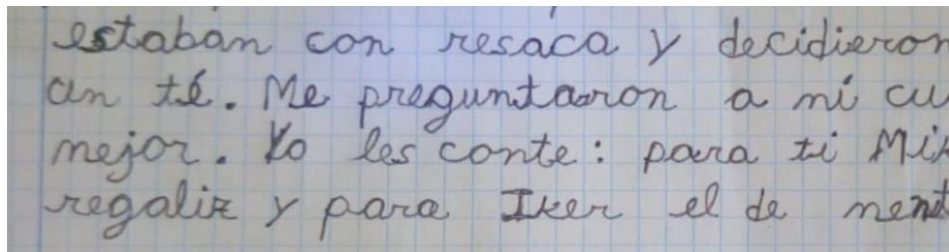 estaban con resaca y decidieron
un té. Me preguntaron a mí cu
mejor. Yo les conte: para ti Mik
regaliz y para Iker el de ment